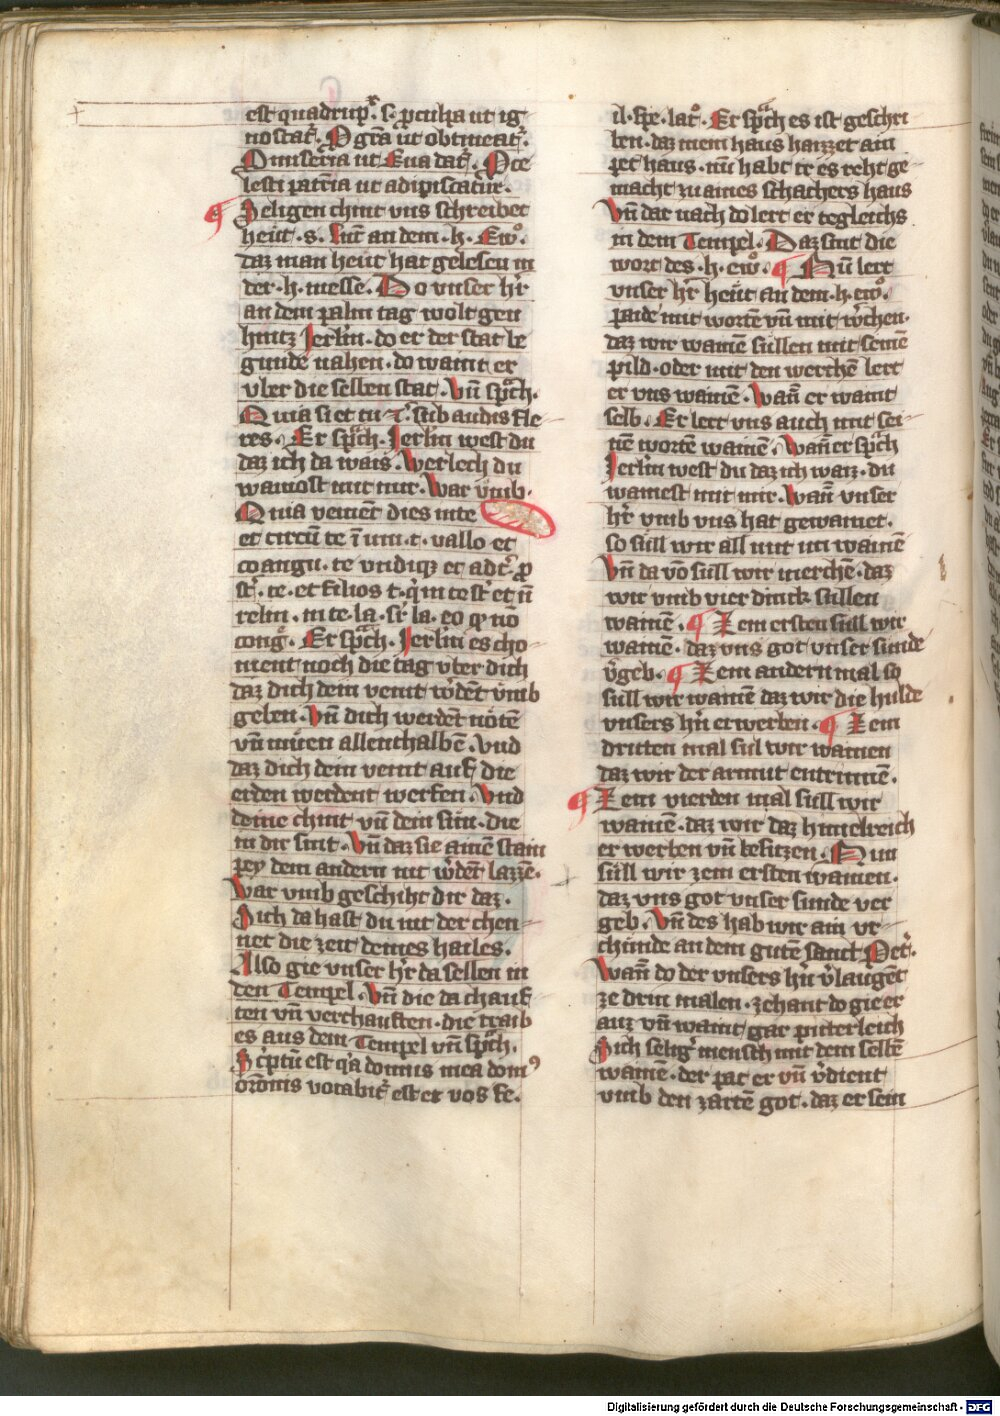 est quadrup͛. s. ꝓ culpa ut ig
noscat͛. P gr̄a ut obtineat͛.
O miseria ut Eua dat͛. P ce
lesti patria ut adipiscatur.
¶ Seligen chint vns schreibet
heút .s. luc̄ an dem .h. Ewͦ.
daz man heút hat gelesen in
der .h. messe. Do vnser hr̄
an dem palm tag wolt gen
hintz Jerlm̄. do er der stat be
gunde nahen. do waint er
vber die selben stat. Vn̄ sprᷓch.
Quia si et tu ⁊c̄. sub audis fle
res. Er sprᷓch. Jerlm̄ west du
daz ich da wais. Werlech du
wainost mit mir. War vmb.
Quia venient dies in te
et circū te ī im .t. vallo et
coangu. te vndiqꝫ et ad t͛ ꝓ
st͛. te. et filios t. q̇ in te st̄ et n̄
relin. in te. la. sr̄ la. eo ꝙ nō
conḡ. Er sprᷓch. Jerlm̄ es cho
ment noch die tag vber dich
daz dich dein veint wͤdēt vmb
geben. Vn̄ dich werdēt nötē
vn̄ müen allenthalbē. Vnd
daz dich dein veint auf die
erden werdent werfen. Vnd
deine chint vn̄ dem sim. die
in dir sint. Vn̄ daz sie ainē stain
pey dem andern nit wͤdēt lazzē.
War vmb geschiht dir daz.
Sich da hast du nit der chen
net die zeit deines hailes.
Also gie vnser hr̄ da selben in
den Tempel. Vn̄ die da chauf
ten vn̄ verchauften. die traib
es aus dem Tempel vn̄ sprᷓch.
Scͥptū est qᷓ domus mea domꝰ
orōnis vocabit͛ est et vos fe.
il. spe. latͦ. Er sprᷓch es ist geschri
ben. daz mein haus haizzet ain
pet haus. nū habt ir es reht ge
macht zu aines schachers haus
Vn̄ dar nach do lert er tegleichs
in dem Tempel. Daz sint die
wort des .h. ewͦ. ¶ Nū lert
vnser hr̄ heút an dem .h. ewͦ.
paide mit wortē vn̄ mit wͤchen.
daz wir wainē súllen mit seinē
pild. oder mit den werchē lert
er vns wainē. Wan̄ er waint
selb. Er lert vns auch mit sei
nē wortē wainē. Wan̄ er sprᷓch
Jerlm̄ west du daz ich waiz. du
wainest mit mir. Wan̄ vnser
hr̄ vmb vns hat gewainet.
so súll wir all mit im wainē
Vn̄ da vō súll wir merchē. daz
wir vmb vier dinck súllen
wainē. ¶ Zem ersten súll wir
wainē. daz vns got vnser sunde
v͛geb. ¶ Zem andern mal so
súll wir wainē daz wir die hulde
vnsers hr̄n erwerben. ¶ Zem
dritten mal súl wir wainen
daz wir der armut entrinnē.
¶ Zem vierden mal súll wir
wainē. daz wir daz himelreich
erwerben vn̄ besitzen. Nun
súll wir zem ersten wainen.
daz vns got vnser sunde ver
geb. Vn̄ des hab wir ain vr
chunde an dem gutē sanct Pet͛.
Wan̄ do der vnsers hr̄n v͛laugēt
ze drin malen. zehant do gie er
auz vn̄ waint gar pitterleich
Sich selig͛ mensch mit dem selbē
wainē. der pat er vn̄ v͛dient
vmb den zartē got. daz er sein
Digitalisierung gefördert durch die Deutsche Forschungsgemeinschaft - DFG